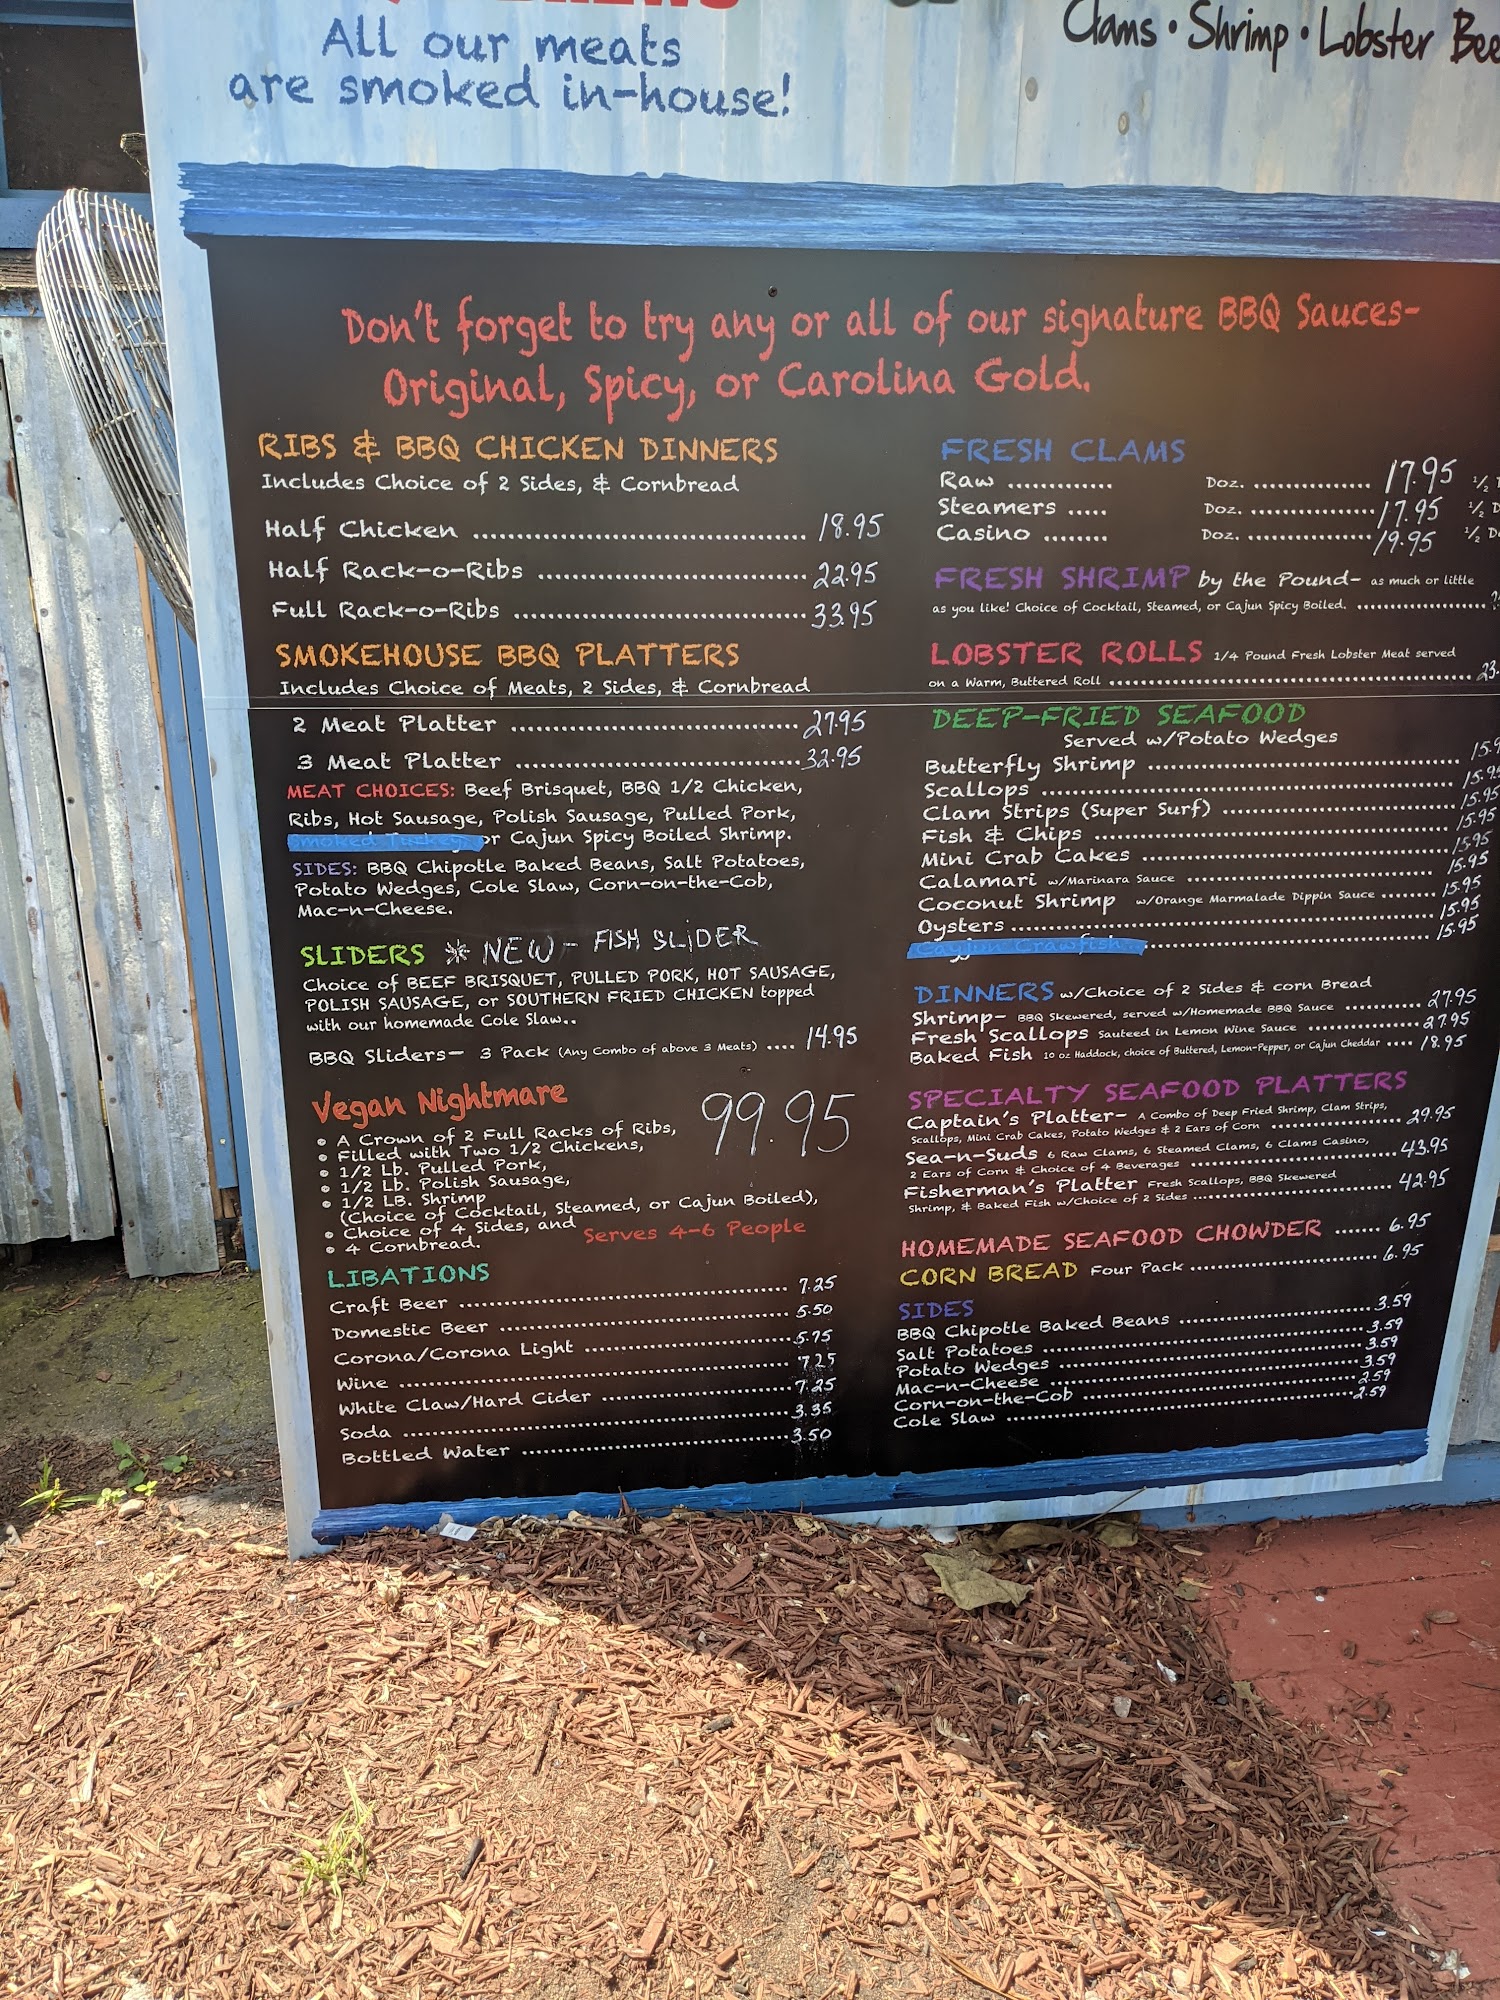 All our meats
are smoked in-house!
Clams • Shrimp • Lobster
Don't forget to try any or all of our signature BBQ Sauces-
Original, Spicy, or Carolina Gold.
RIBS & BBQ CHICKEN DINNERS
Includes Choice of 2 Sides, & Cornbread
Half Chicken 18.95
Half Rack-o-Ribs 22.95
Full Rack-o-Ribs 33.95
SMOKEHOUSE BBQ PLATTERS
Includes Choice of Meats, 2 Sides, & Cornbread
2 Meat Platter 27.95
3 Meat Platter 32.95
MEAT CHOICES: Beef Brisquet, BBQ 1/2 Chicken,
Ribs, Hot Sausage, Polish Sausage, Pulled Pork,
Smoked Turkey, or Cajun Spicy Boiled Shrimp.
SIDES: BBQ Chipotle Baked Beans, Salt Potatoes,
Potato Wedges, Cole Slaw, Corn-on-the-Cob,
Mac-n-Cheese.
SLIDERS * NEW - FISH SLIDER
Choice of BEEF BRISQUET, PULLED PORK, HOT SAUSAGE,
POLISH SAUSAGE, or SOUTHERN FRIED CHICKEN topped
with our homemade Cole Slaw..
BBQ Sliders- 3 Pack (Any Combo of above 3 Meats) .... 14.95
Vegan Nightmare 99.95
• A Crown of 2 Full Racks of Ribs,
• Filled with Two 1/2 Chickens,
• 1/2 Lb. Pulled Pork,
• 1/2 Lb. Polish Sausage,
• 1/2 LB. Shrimp
(Choice of Cocktail, Steamed, or Cajun Boiled),
• Choice of 4 Sides, and
• 4 Cornbread.
Serves 4-6 People
LIBATIONS
Craft Beer 7.25
Domestic Beer 5.50
Corona/Corona Light 5.75
Wine 7.25
White Claw/Hard Cider 7.25
Soda 3.35
Bottled Water 3.50
FRESH CLAMS
Raw Doz. 17.95 1/2
Steamers Doz. 17.95 1/2
Casino Doz. 19.95 1/2
FRESH SHRIMP by the Pound- as much or little
as you like! Choice of Cocktail, Steamed, or Cajun Spicy Boiled.
LOBSTER ROLLS 1/4 Pound Fresh Lobster Meat served
on a Warm, Buttered Roll 23.
DEEP-FRIED SEAFOOD
Served w/Potato Wedges
Butterfly Shrimp 15.9
Scallops 15.95
Clam Strips (Super Surf) 15.95
Fish & Chips 15.95
Mini Crab Cakes 15.95
Calamari w/Marinara Sauce 15.95
Coconut Shrimp w/Orange Marmalade Dippin Sauce 15.95
Oysters 15.95
Crawfish 15.95
DINNERS w/Choice of 2 Sides & corn Bread
Shrimp- BBQ Skewered, served w/Homemade BBQ Sauce 27.95
Fresh Scallops Sauteed in Lemon Wine Sauce 27.95
Baked Fish 10 oz Haddock, choice of Buttered, Lemon-Pepper, or Cajun Cheddar .... 18.95
SPECIALTY SEAFOOD PLATTERS
Captain's Platter- A Combo of Deep Fried Shrimp, Clam Strips,
Scallops, Mini Crab Cakes, Potato Wedges & 2 Ears of Corn 29.95
Sea-n-Suds 6 Raw Clams, 6 Steamed Clams, 6 Clams Casino,
2 Ears of Corn & Choice of 4 Beverages 43.95
Fisherman's Platter Fresh Scallops, BBQ Skewered
Shrimp, & Baked Fish w/Choice of 2 Sides 42.95
HOMEMADE SEAFOOD CHOWDER 6.95
CORN BREAD Four Pack 6.95
SIDES
BBQ Chipotle Baked Beans 3.59
Salt Potatoes 3.59
Potato Wedges 3.59
Mac-n-Cheese 3.59
Corn-on-the-Cob 2.59
Cole Slaw 2.59